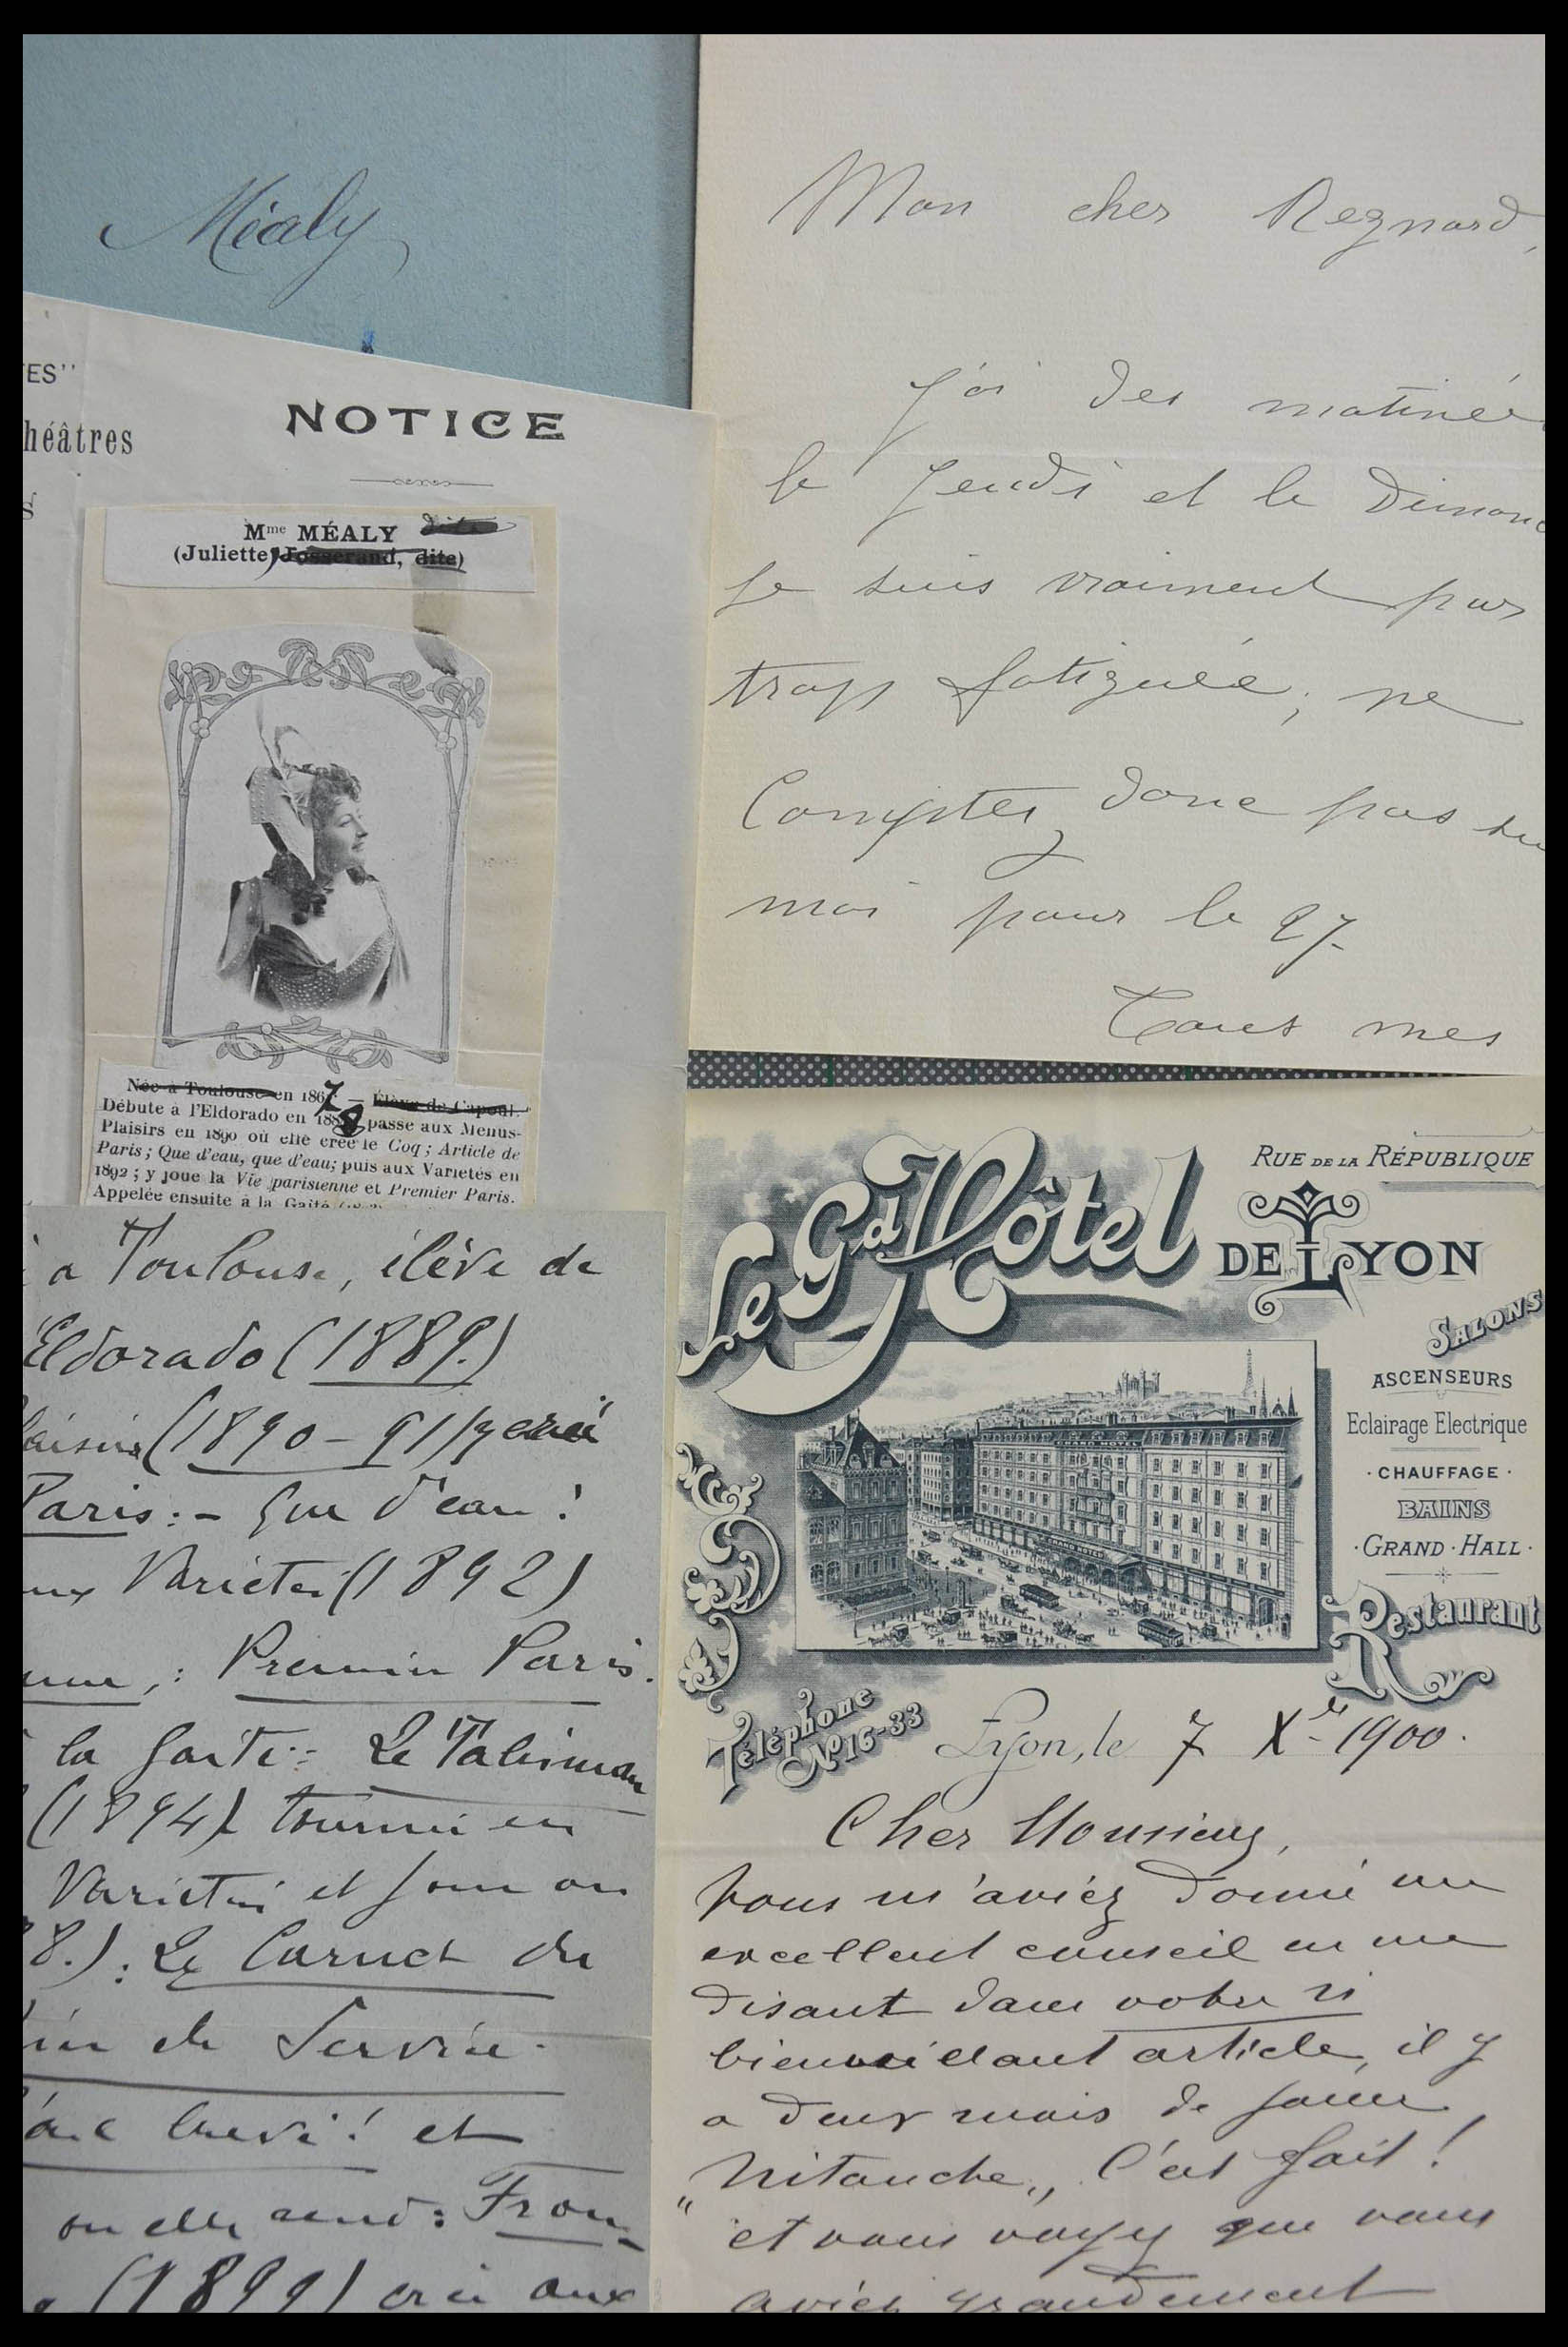 Méaly
ES''
héâtres
S
NOTICE
Mme MÉALY dite
(Juliette) Josserand, dite)
Née à Toulouse en 1867 — Élève de Capoul.
Débute à l'Eldorado en 1888 passe aux Menus-
Plaisirs en 1890 où elle crée le Coq ; Article de
Paris ; Que d'eau, que d'eau; puis aux Variétés en
1892 ; y joue la Vie parisienne et Premier Paris.
Appelée ensuite à la Gaîté
à Toulouse, élève de
Eldorado (1889.)
laisirs (1890 - 91) y créé
Paris: - Que d'eau !
aux Varietés (1892)
enne ; : Premier Paris.
la Gaité : Le Talisman
(1894) tournée en
Varietés et joue au
8.) : Le Carnet du
in de Service.
et
où elle crée : Frou-
(1899) crée aux
Mon cher Regnard,
J'ai des matinée
le Jeudi et le Dimanc
je suis vraiment par
trop fatiguée, ne
Comptez donc pas su
moi pour le 27
Tous mes
Le Gd Hôtel
RUE DE LA RÉPUBLIQUE
DE LYON
SALONS
ASCENSEURS
Eclairage Electrique
· CHAUFFAGE ·
BAINS
· GRAND · HALL ·
Restaurant
GRAND HOTEL
GRAND HOTEL
Téléphone
No 16-33
Lyon, le 7 Xre 1900.
Cher Monsieur,
Vous m'aviez donné un
excellent conseil en me
disant dans votre si
bienveillant article, il y
a deux mois de jouer
"Nitouche", C'est fait !
et vous voyez que vous
aviez grandement